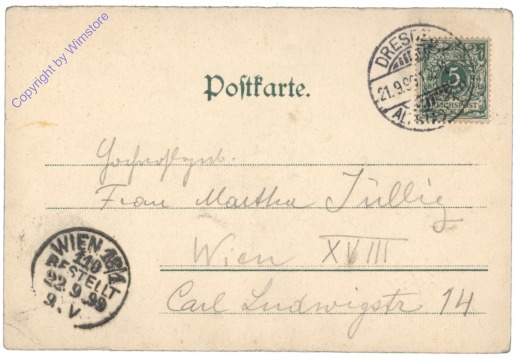 Copyright by Wimstore
Postkarte.
DRESDEN
21.9.99
ALTST.
5
REICHSPOST
Frau Martha Jüllig
Wien XVIII
Carl Ludwigstr 14
WIEN 18/1
110
BESTELLT
22.9.99
9. V